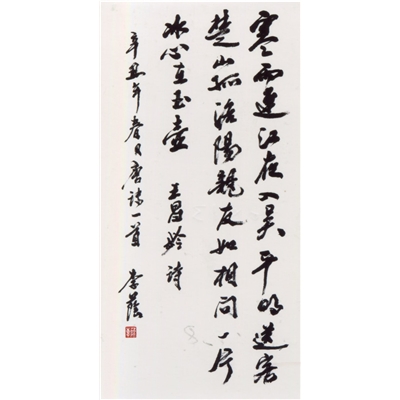 寒雨連江夜入吳平明送客
楚山孤洛陽親友如相問一片
冰心在玉壺 王昌齡詩
辛丑年春月唐詩一首 李蔭